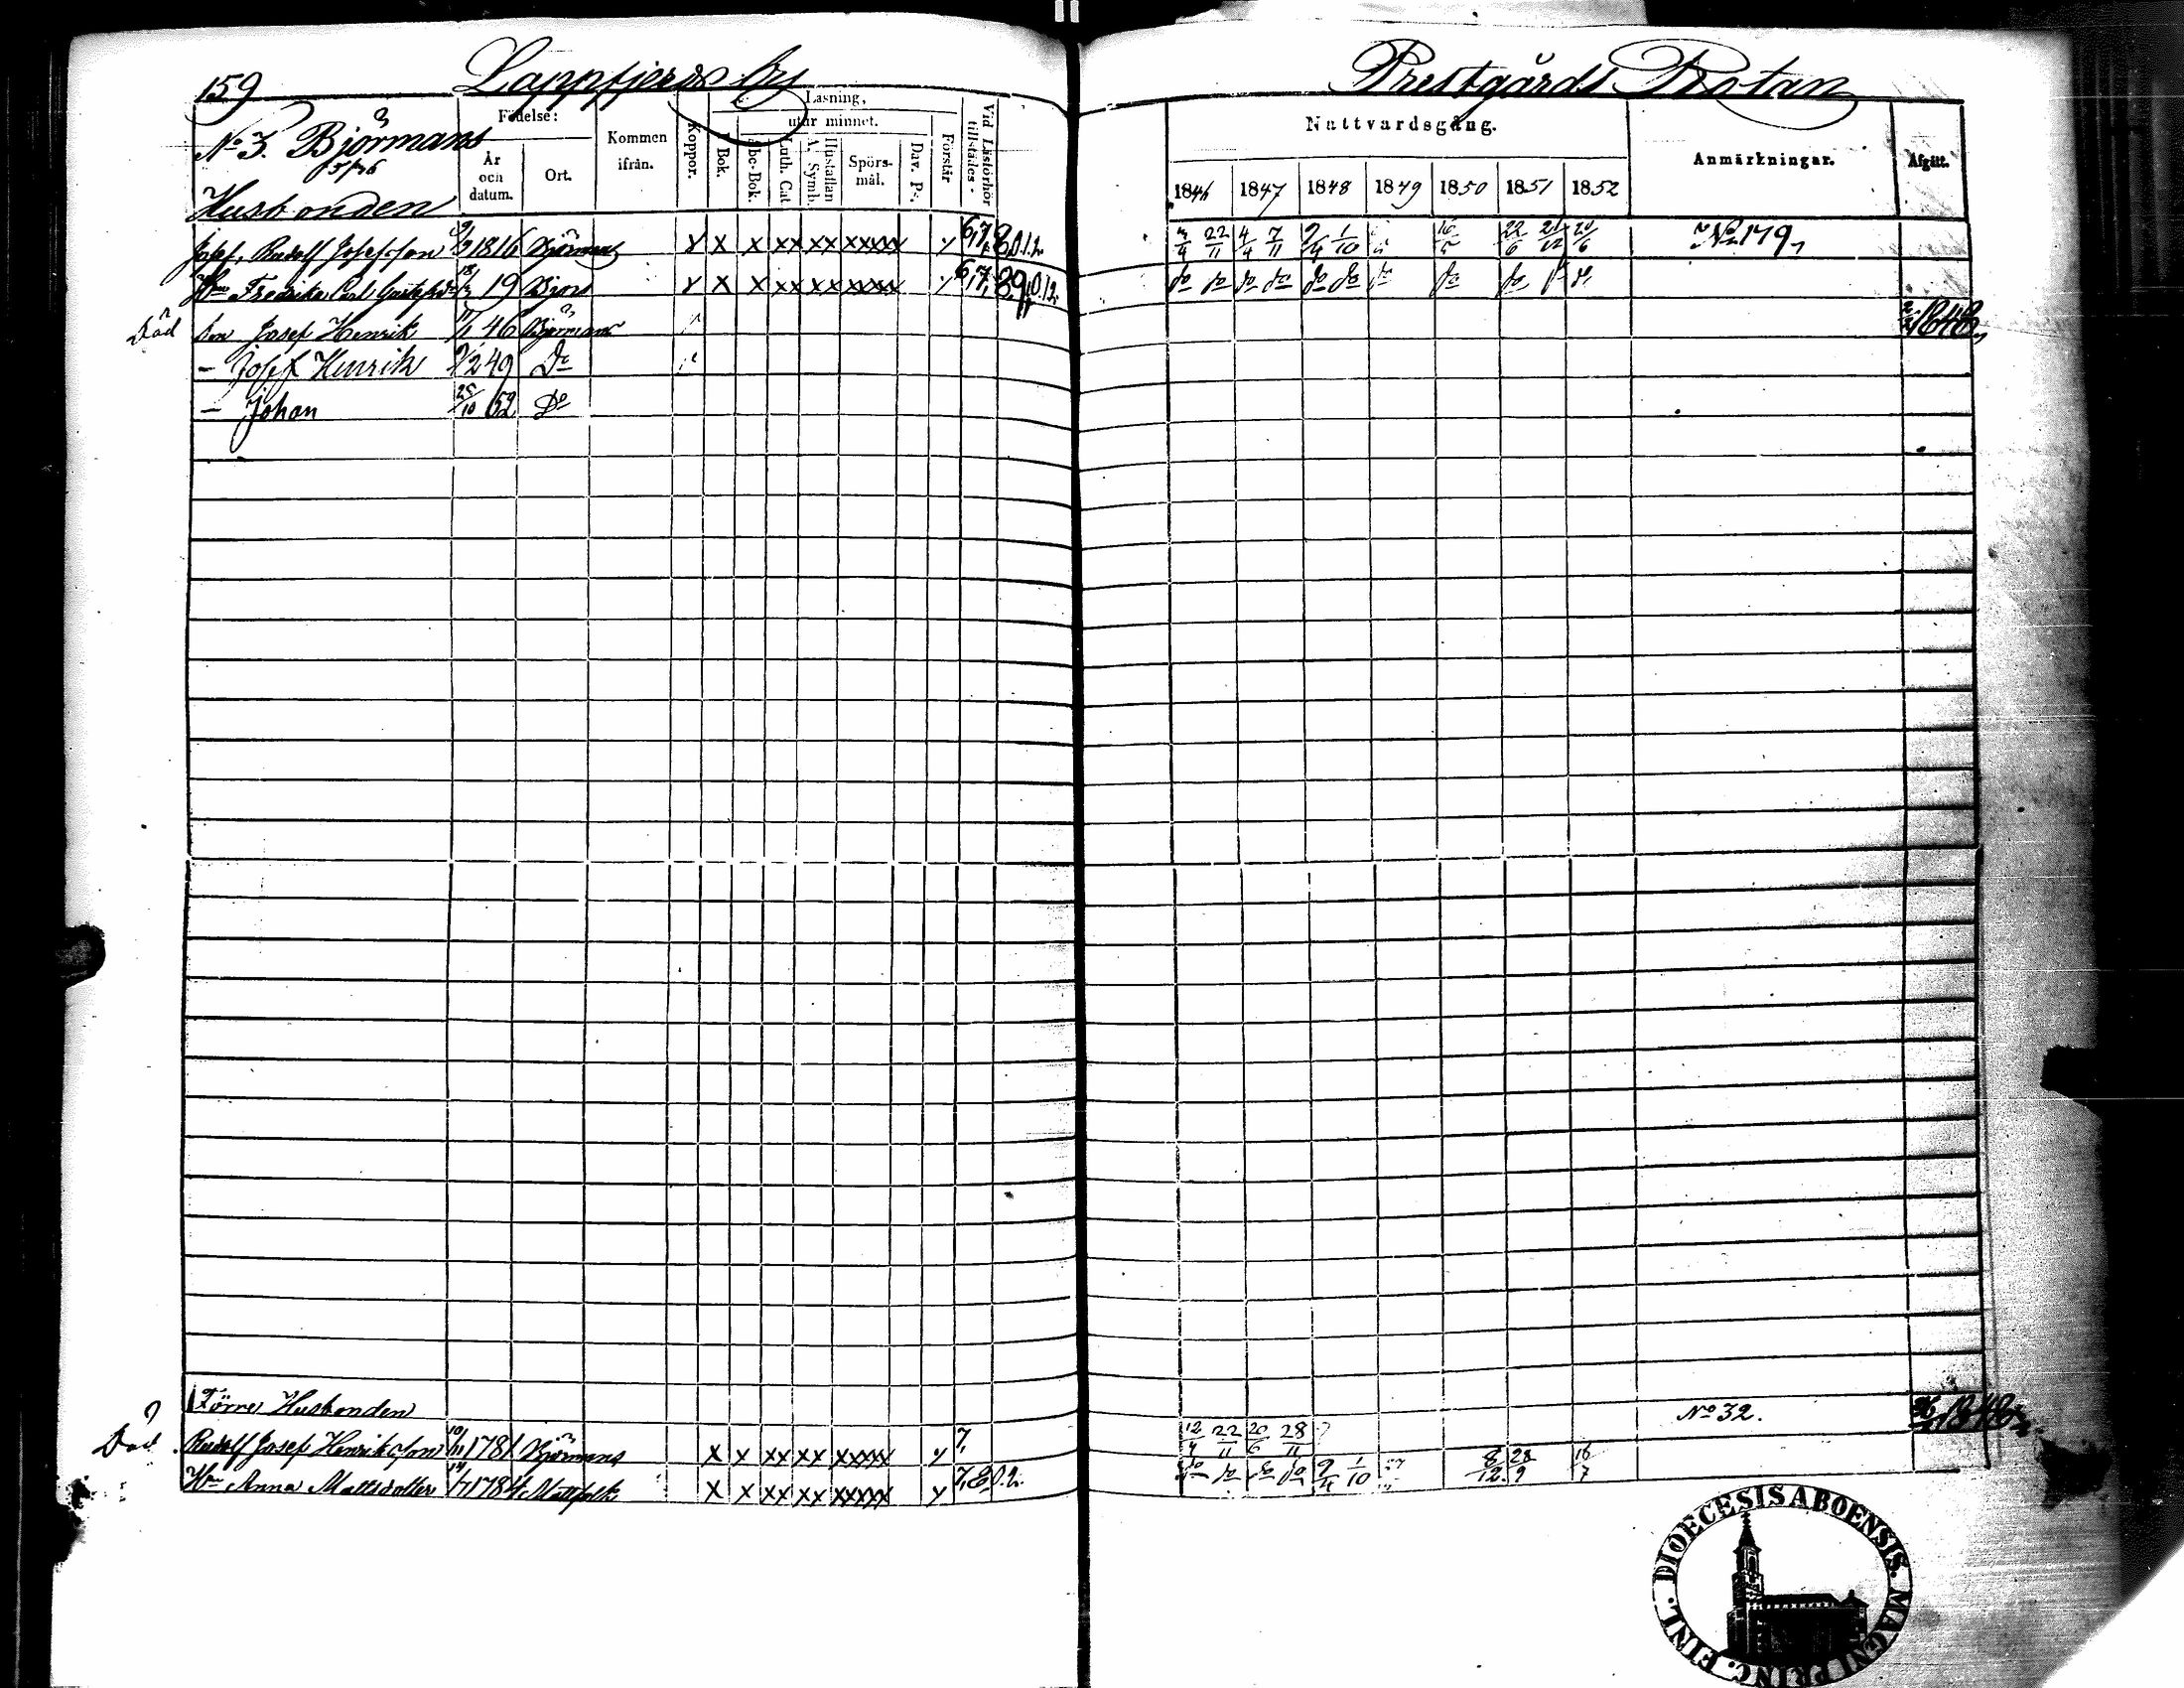 159 Lappfjerds by
Prestgårds Rotan
No 3. Björmans
Husbonden
Födelse:
År och datum.
Ort.
Kommen ifrån.
Koppor.
Läsning,
utur minnet.
Bok.
Abc-Bok.
Luth. Cat
Hustaflan A. Symb.
Spörs-mål.
Dav. Ps.
Förstår
Vid Läsförhör tillstädes
Nattvardsgång.
1846 1847 1848 1849 1850 1851 1852
Anmärkningar.
Afgått.
Josef Rudolf Josefsson 1816 Björmans x x x xx xx xxxxx No 179
Hu Fredrika Carl Gustafsdr 19 x x x xx xx xxxxx do do do do do do do do do
Död Son Josef Henrik 46 Björmans 1848
- Josef Henrik 49 Do
- Johan 25/10 52 Do
Förre Husbonden
Död Rudolf Josef Henriksson 1781 Björmans x x xx xx xxxxx 7, 12/4 22/11 20/6 28/11 No 32. 1848
Hu Anna Mattsdotter 1784 Mattfolk x x xx xx xxxxx do do do do 9/4 1/10 8/12 28/9 16/7
DIOECESIS ABOENSIS. MAGNI PRINC. FINL.